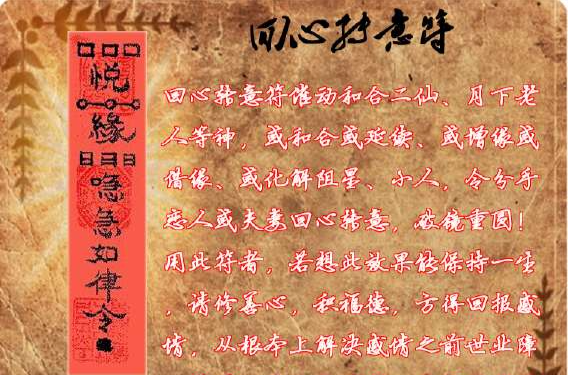 回心转意符
回心转意符催动和合二仙、月下老
人等神，或和合或延续、或增缘或
借缘、或化解阻星、小人，令分手
恋人或夫妻回心转意，破镜重圆！
用此符者，若想此效果能保持一生
，请修善心，积福德，方得回报感
情，从根本上解决感情之前世业障
悦
缘
急如律令